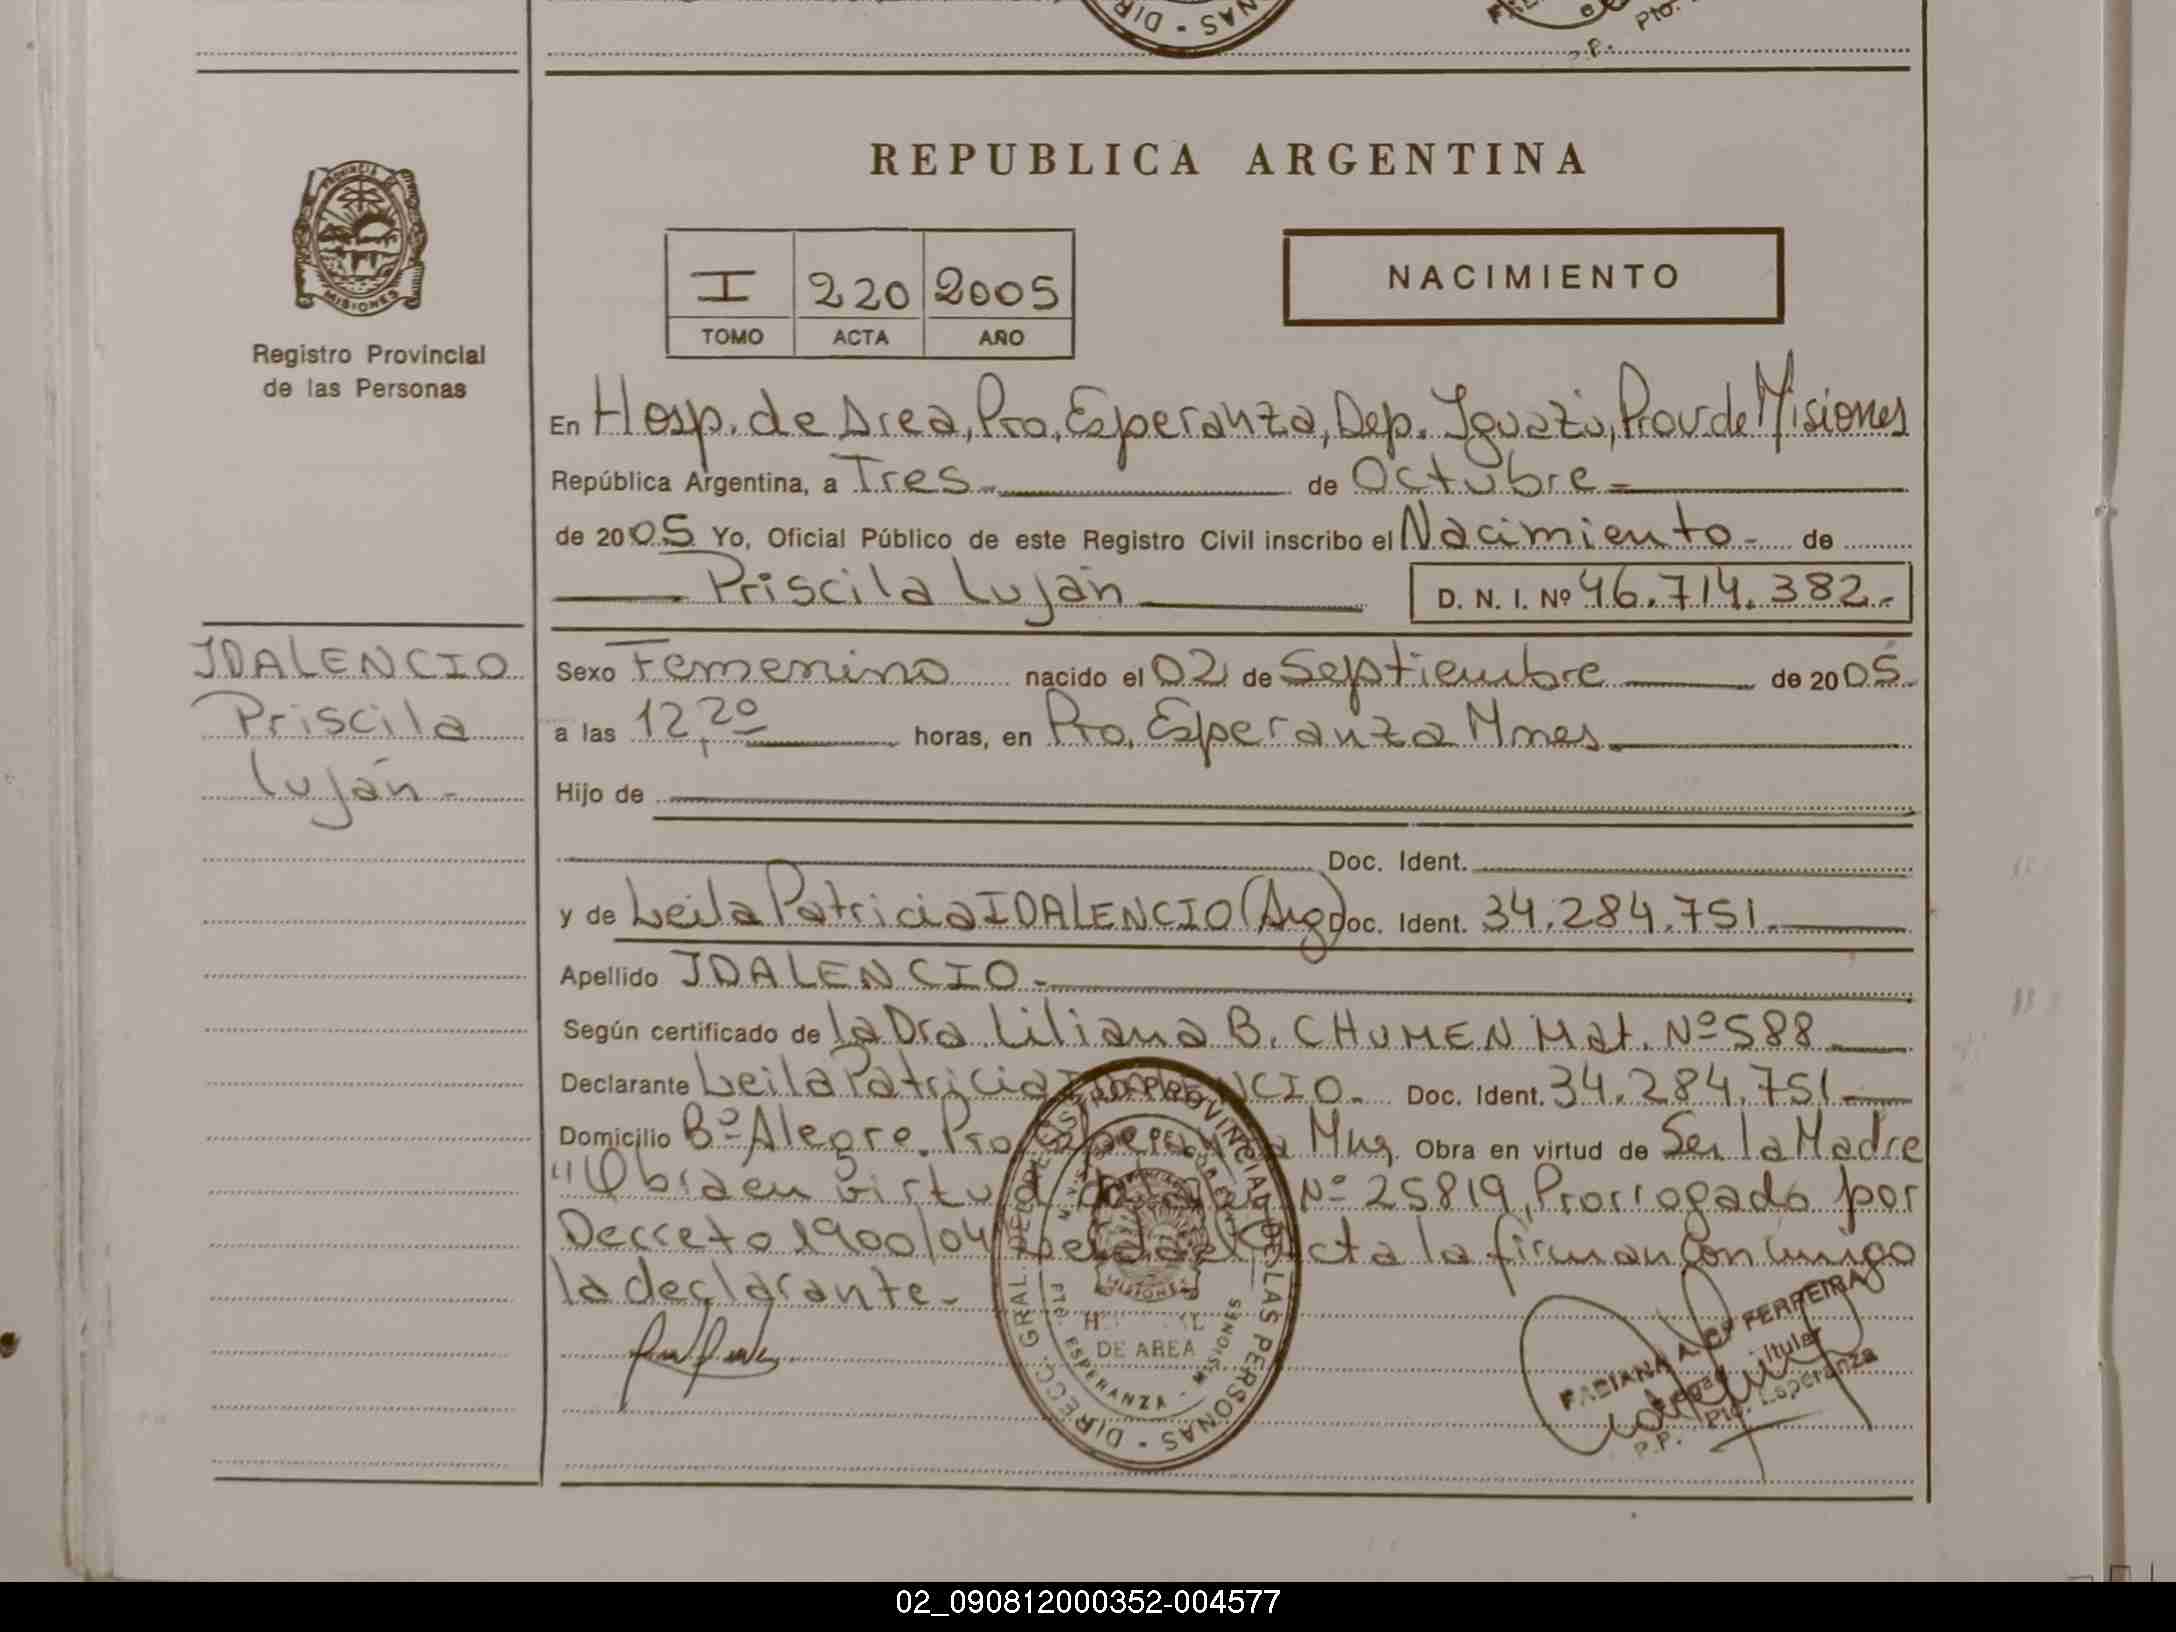 REPUBLICA ARGENTINA
PROVINCIA DE
MISIONES
Registro Provincial
de las Personas
I 220 2005
TOMO ACTA AÑO
NACIMIENTO
En Hosp. de Area, Pto. Esperanza, Dep. Iguazú, Prov. de Misiones
República Argentina, a Tres.- de Octubre -
de 2005 Yo, Oficial Público de este Registro Civil inscribo el Nacimiento - de
Priscila Luján D. N. I. Nº 46.714.382.-
IDALENCIO
Priscila
Luján -
Sexo Femenino nacido el 02 de Septiembre de 2005.
a las 12,20 horas, en Pto. Esperanza Mnes.
Hijo de
Doc. Ident.
y de Leila Patricia IDALENCIO (Arg) Doc. Ident. 34.284.751.
Apellido IDALENCIO.-
Según certificado de la Dra. Liliana B. CHUMEN Mat. Nº 588
Declarante Leila Patricia IDALENCIO. Doc. Ident. 34.284.751
Domicilio Bº Alegre. Pto. Esperanza Mns. Obra en virtud de Ser la Madre
"Obra en virtud Nº 25819, Prorrogado por
Decreto 1900/04 acta la firman Conmigo
la declarante.-
DIRECC. GRAL. DEL REGISTRO PROVINCIAL DE LAS PERSONAS
MISIONES
DE AREA
PTO. ESPERANZA - MISIONES
FABIANA A. Cº FERREIRA
Titular
Pto. Esperanza
P.P.
02_090812000352-004577